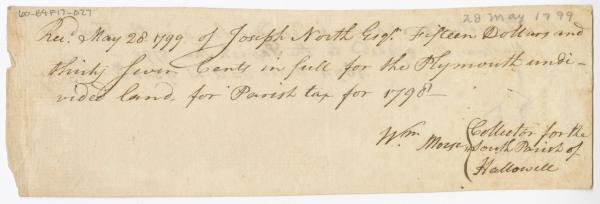 60-E4F17-027
28 May 1799
Rec.d May 28 1799 of Joseph North Esqr. Fifteen Dollars and
thirty Seven Cents in full for the Plymouth undi-
vided land, for Parish tax for 1798
Wm. Morse, Collector for the
South Parish of
Hallowell